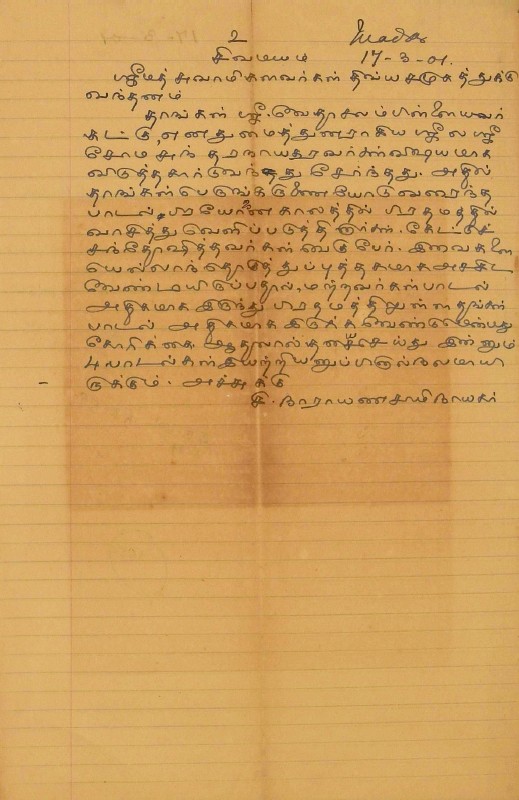 உ Madras
சிவமயம் 17-3-01.
ஸ்ரீமத் சுவாமிகளவர்கள் திவ்யசமுகத்துக்கு
வந்தனம்
தாங்கள் ஸ்ரீ. வேதாசலம்பிள்ளையவர்
கட்டு, எனதுமைத்துனராகிய ஸ்ரீலஸ்ரீ
சோமசுந்தரநாயகரவர்கள்விஷயமாக
விடுத்தகார்டுவந்து சேர்ந்தது. அதில்
தாங்கள் பெருங்கருணையோடுவரைந்த
பாடலை, பிரயோகாலத்தில் பிரதமத்தில்
வாசித்துவெளிப்படுத்தினார்கள். கேட்டுச்
சந்தோஷித்தவர்கள் வெகுபேர். இவைகளை
யெல்லாந்தொகுத்துப்புத்தகமாக அச்சிட
வேண்டியிருப்பதால், மற்றவர்கள்பாடல்
அதிகமாக இருந்து பிரதமத்திலுள்ள தங்கள்
பாடல் அதிகமாக இருக்கவேண்டுமென்பது
கோரிக்கை. ஆதலால் தயைசெய்து இன்னும்
4 பாடல்கள் இயற்றியனுப்பினால் நலமாயி
ருக்கும். அச்சுக்கு
சி. நாராயணசாமிநாயகர்